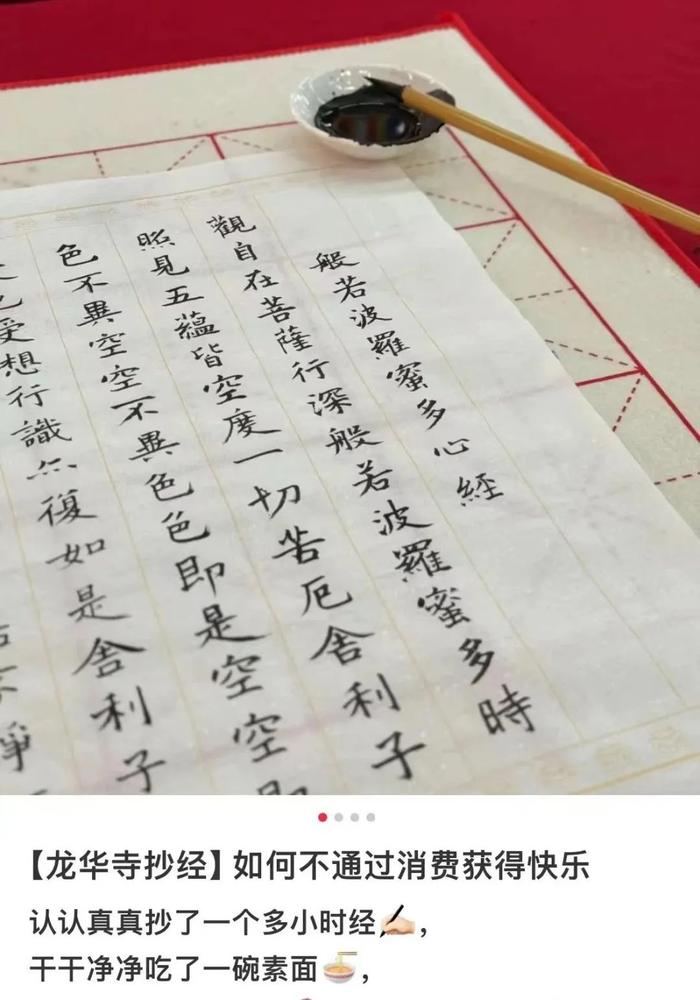 般若波羅蜜多心經
觀自在菩薩行深般若波羅蜜多時
照見五蘊皆空度一切苦厄舍利子
色不異空空不異色色即是空空即
受想行識亦復如是舍利子
【龙华寺抄经】如何不通过消费获得快乐
认认真真抄了一个多小时经✍🏻，
干干净净吃了一碗素面🍜，